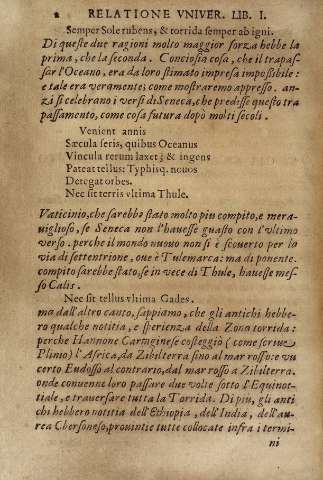 2 RELATIONE VNIVER. LIB. I.
Semper Sole rubens, & torrida semper ab igni.
Di queste due ragioni molto maggior forza hebbe la
prima, che la seconda. Conciosia cosa, che il trapas-
sar l'Oceano, era da loro stimato impresa impossibile:
e tale era vergamente, come mostraremo appresso. an-
zi si celebrano i versi di Seneca, che predisse questo tra
passamento, come cosa futura dopò molti secoli.
Venient annis
Sæcula seris, quibus Oceanus
Vincula rerum laxet; & ingens
Pateat tellus: Typhisq. nouos
Detegat orbes.
Nec sit terris vltima Thule.
Vaticinio, che sarebbe stato molto piu compito, e mera-
uiglioso, se Seneca non l'hauesse guasto con l'vltimo
verso. perche il mondo nuouo non si è scouerto per la
via di settentrione, oue è Tulemarca: ma di ponente.
compito sarebbe stato, se in vece di Thule, hauesse mes-
so Calis.
Nec sit tellus vltima Gades.
ma dall'altro canto, sappiamo, che gli antichi hebbe-
ro qualche notitia, e sperienza della Zona torrida:
perche Hannone Cartaginese costeggiò (come scriue
Plinio) l'Africa, da Zibilterra sino al mar rosso: e vn
certo Eudosso al contrario, dal mar rosso a Zibilterra.
onde conuenne loro passare due volte sotto l'Equinot-
tiale, e trauersare tutta la Torrida. Di piu, gli anti
chi hebbero notitia dell'Ethiopia, dell'India, dell'au-
rea Chersoneso, prouintie tutte collocate infra i termi-
ni